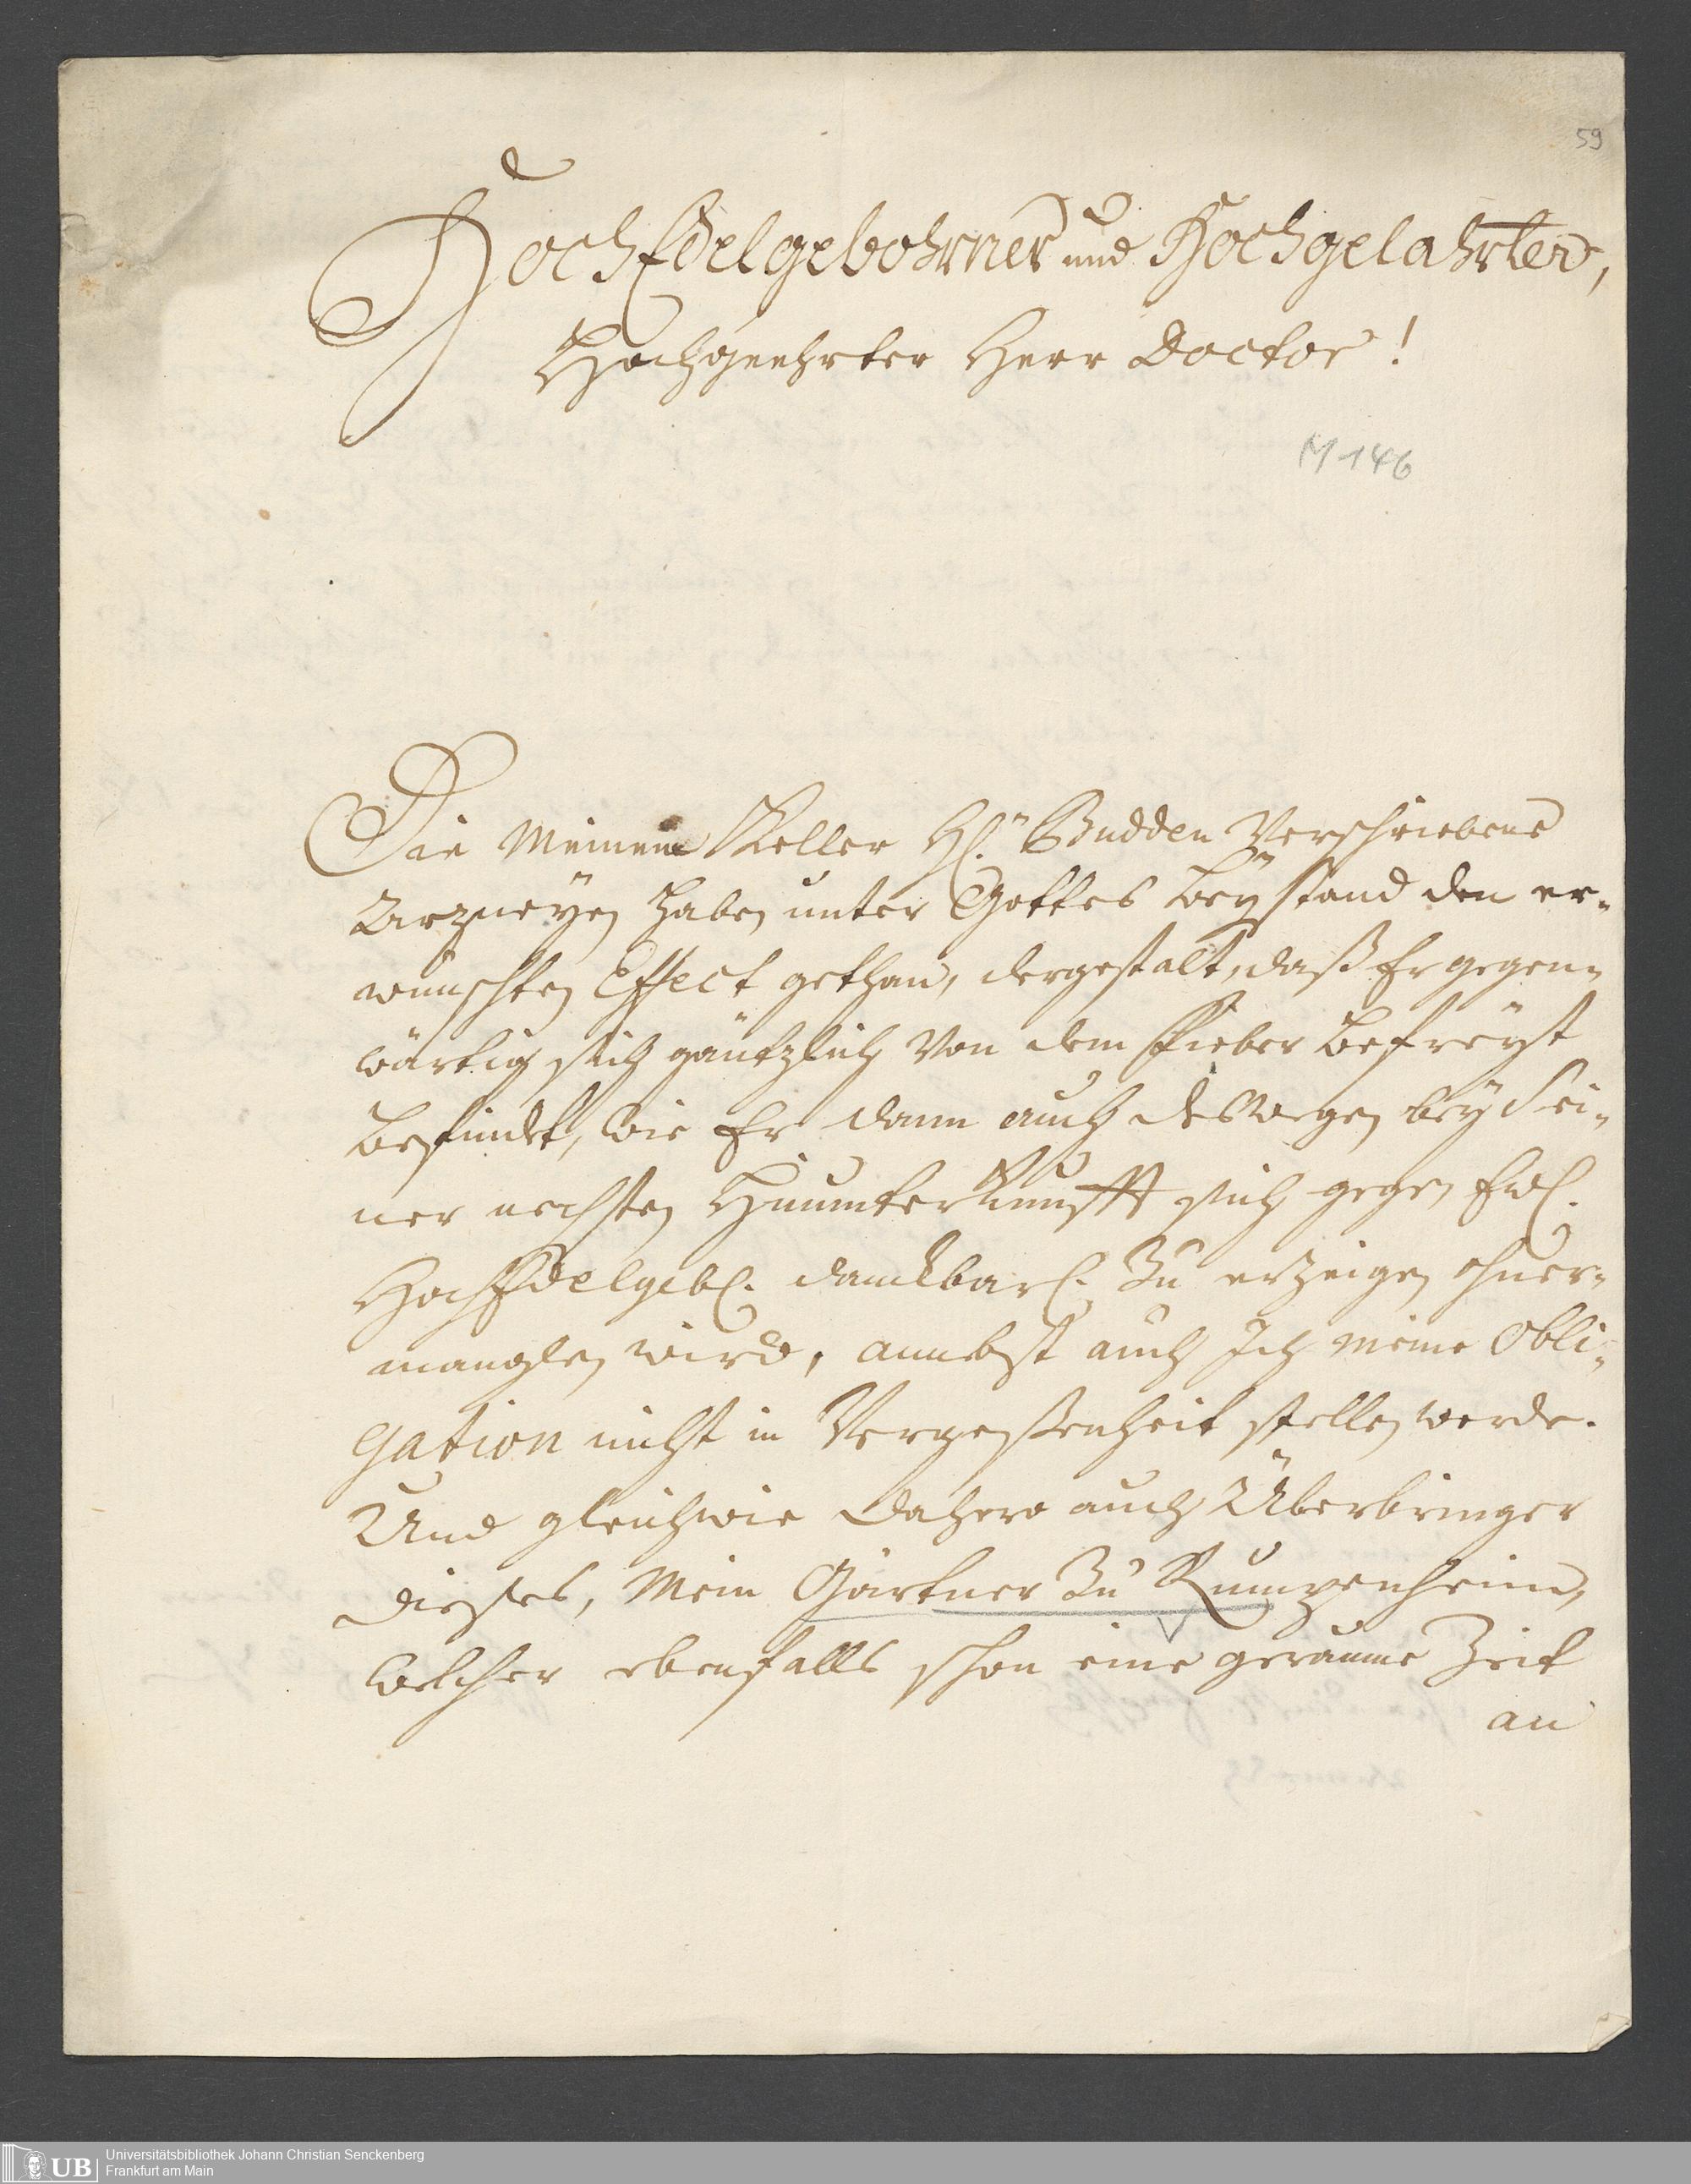 59
HochEdelgebohrner und Hochgelahrter,
Hochgeehrter Herr Doctor!
M 146
Die Meinem Keller H. Budden Verschriebene
Artzneyen haben unter Gottes beystand den er-
wünschten Effect gethan, dergestalt, daß Er gegen-
wärtig sich gäntzlich von dem Fieber befreyst
befindet, wie Er dann auch deswegen bey Sei-
ner nechsten Hinunterkunfft sich gegen Ew.
HochEdelgeb. danckbarl. zu erzeigen ohner-
manglen wird, annebst auch Ich meine Obli-
gation nicht in Vergeßenheit stellen werde.
Und gleichwie dahero auch Überbringer
dießes, Mein Gärtner zu Rumpenheim,
welcher ebenfalls schon eine geraume Zeit
an
UB
Universitätsbibliothek Johann Christian Senckenberg
Frankfurt am Main